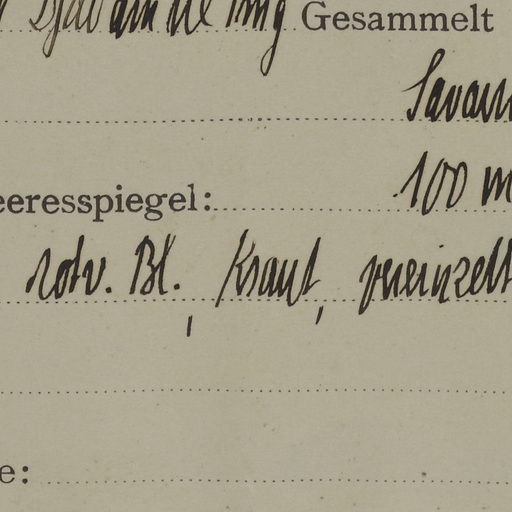 Gesammelt
Savann
eeresspiegel: 100 m
rotv. Bl., Kraut, vereinzelt
e: